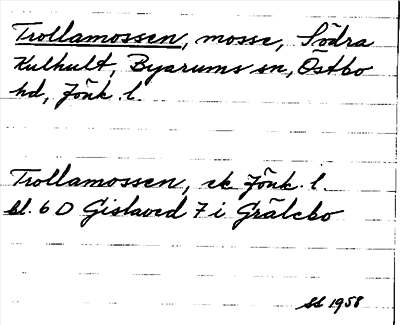 Trollamossen, mosse, Södra
Kulhult, Byarums sn, Östbo
hd, Jönk. l.
Trollamossen, ek Jönk. l.
bl. 6 D Gislaved 7 i Grälebo
SS 1958